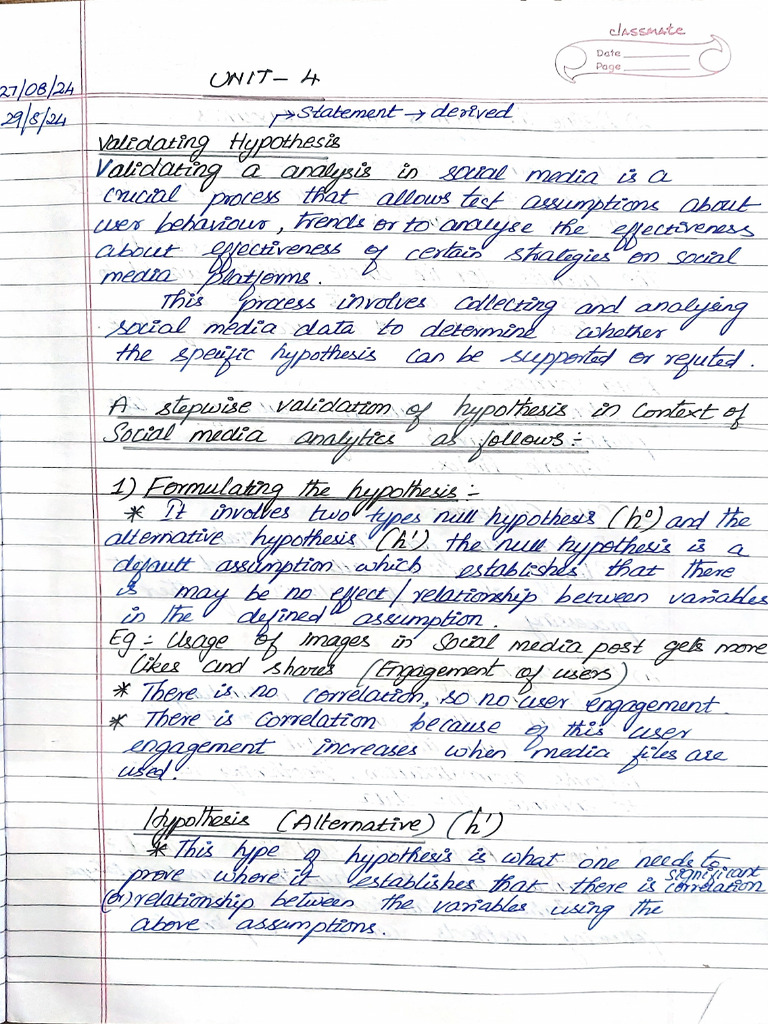 classmate
Date
Page
27/08/24
UNIT - 4
29/8/24
→ Statement → derived
Validating Hypothesis
Validating a analysis in social media is a
crucial process that allows test assumptions about
user behaviour, trends or to analyse the effectiveness
about effectiveness of certain strategies on social
media platforms.
This process involves collecting and analysing
social media data to determine whether
the specific hypothesis can be supported or refuted.
A stepwise validation of hypothesis in context of
Social media analytics as follows :-
1) Formulating the hypothesis :-
* It involves two types null hypothesis (h⁰) and the
alternative hypothesis (h') the null hypothesis is a
default assumption which establishes that there
is may be no effect / relationship between variables
in the defined assumption.
Eg :- Usage of images in Social media post gets more
likes and shares (Engagement of users)
* There is no correlation, so no user engagement.
* There is correlation because of this user
engagement increases when media files are
used.
Hypothesis (Alternative) (h')
* This type of hypothesis is what one needs to
prove where it establishes that there is significant correlation
(or) relationship between the variables using the
above assumptions.